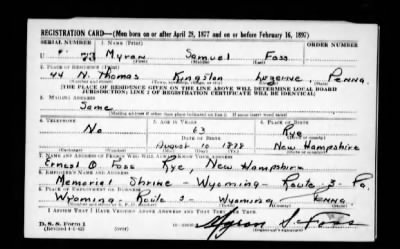 REGISTRATION CARD—(Men born on or after April 28, 1877 and on or before February 16, 1897)
SERIAL NUMBER 1. NAME (Print) ORDER NUMBER
U Myron Samuel Foss
2. PLACE OF RESIDENCE (Print)
44 N. Thomas Kingston Luzerne Penna.
[THE PLACE OF RESIDENCE GIVEN ON THE LINE ABOVE WILL DETERMINE LOCAL BOARD
JURISDICTION; LINE 2 OF REGISTRATION CERTIFICATE WILL BE IDENTICAL]
3. MAILING ADDRESS
Same
[Mailing address if other than place indicated on line 2. If same insert word same]
4. TELEPHONE 5. AGE IN YEARS 6. PLACE OF BIRTH
No 63 Rye
DATE OF BIRTH
August 10 1878 New Hampshire
7. NAME AND ADDRESS OF PERSON WHO WILL ALWAYS KNOW YOUR ADDRESS
Ernest O. Foss Rye, New Hampshire
8. EMPLOYER'S NAME AND ADDRESS
Memorial Shrine - Wyoming - Route - 3 - Pa.
9. PLACE OF EMPLOYMENT OR BUSINESS
Wyoming - Route 3 - Wyoming Penna
I AFFIRM THAT I HAVE VERIFIED ABOVE ANSWERS AND THAT THEY ARE TRUE.
D. S. S. Form 1
Myron S. Foss